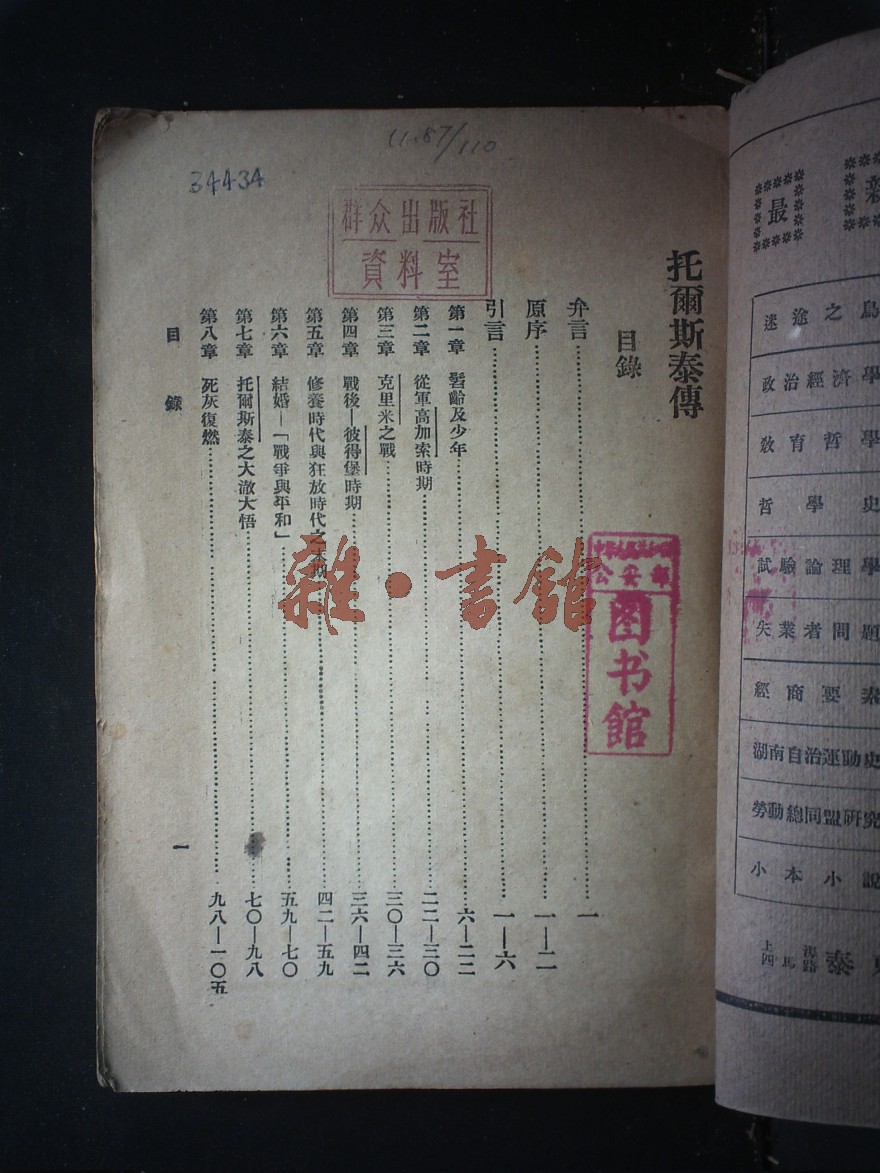 11.87/110
34434
群众出版社
資料室
托爾斯泰傳
目錄
弁言……一
原序……一—二
引言……一—六
第一章 髫齡及少年……六—二二
第二章 從軍高加索時期……二二—三〇
第三章 克里米之戰……三〇—三六
第四章 戰後—彼得堡時期……三六—四二
第五章 修養時代與狂放時代之末期……四二—五九
第六章 結婚—「戰爭與平和」……五九—七〇
第七章 托爾斯泰之大澈大悟……七〇—九八
第八章 死灰復燃……九八—一〇五
目錄
一
公安部
图书馆
雜·書館
最
迷途之鳥
政治經濟學
教育哲學
哲學史
試驗論理學
失業者問題
經商要素
湖南自治運動史
勞動總同盟研究
小本小說
上 四馬路
泰